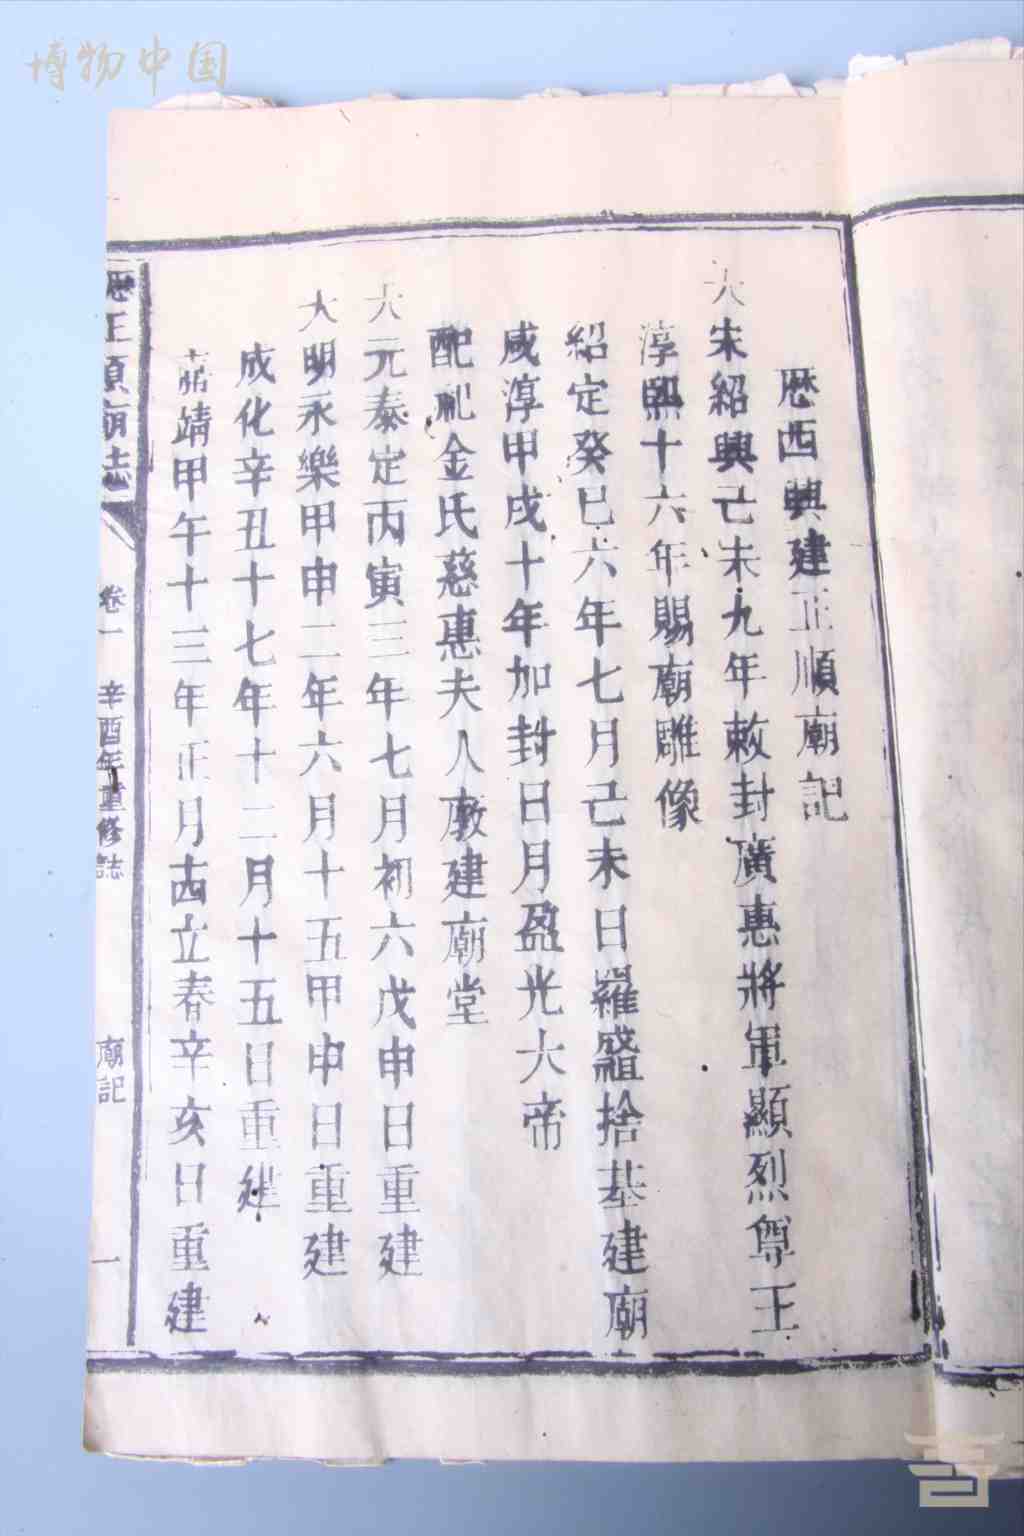 博物中国
歷西興建正順廟記
大宋紹興己未九年敕封廣惠將軍顯烈尊王
淳熙十六年賜廟雕像
紹定癸巳六年七月己未日羅盛祖捨基建廟
咸淳甲戌十年加封日月盈光大帝
配祀金氏慈惠夫人敕建廟堂
大元泰定丙寅三年七月初六戊申日重建
大明永樂甲申二年六月十五甲申日重建
成化辛丑十七年十二月十五日重建
嘉靖甲午十三年正月古西立春辛亥日重建
歷正順廟志
卷一
辛酉年重修誌
廟記
一